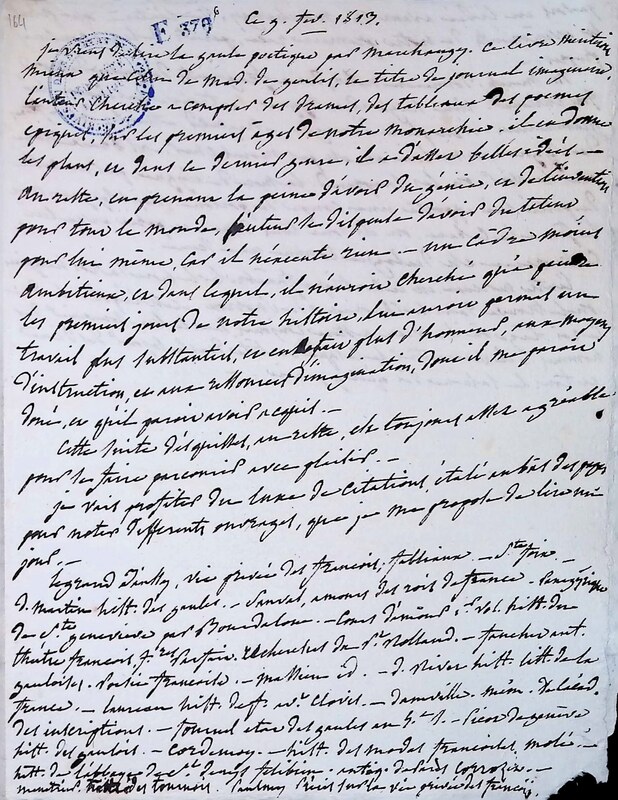 164
E 379 6
Ce 9. fev. 1813.
je viens de lire la gaule poetique par Marchangy. ce livre mérite
mieux que celui de Mad. de genlis, le titre de journal imaginaire.
l'auteur cherche a composer des drames, des tableaux des poemes
epiques, sur les premiers ages de notre monarchie. il en donne
les plans, et dans ce dernier genre, il a d'assez belles idées. —
au reste, en prenant la peine d'avoir du génie, et de l'invention
pour tout le monde, l'auteur se dispense d'avoir du talent
pour lui même, car il n'execute rien. — un cadre moins
ambitieux, et dans lequel, il n'auroit cherché qu'a peindre
les premiers jours de notre histoire, lui auroit permis un
travail plus substantiel, et en faire plus d'honneur, aux moyens
d'instruction, et aux ressources d'imagination, dont il me paroit
doué, et qu'il paroit avoir acquis. —
Cette suite d'esquisses, au reste, est toujours assez agréable
pour se faire parcourir avec plaisir. —
je vais profiter du luxe de citations, étalé au bas des pages
pour noter differents ouvrages, que je me propose de lire un
jour. —
legrand d'aussy, vie privée des françois, fabliaux. — Ste foix. —
d. martin hist. des gaules. — Sauval, amours des rois de france. — Panegyrique
de Ste genevieve par Bourdaloue. — Cours d'amour 1er vol. hist. du
theatre françois frères Parfait. recherches du Pt Rolland. — fauchet ant.
gauloises. Poesie françoise. — Massieu id. — d. Rivet hist. litt. de la
france. — laureau hist. de f. av. Clovis. — Mém. de l'acad.
des inscriptions. — Picot de genève
hist. des gaulois. — Cordemoy. — hist. des modes françoises, molé. —
hist. de l'abbaye de St. denys félibien. antiq. de Paris Corrozet. —
menetrier des tournois. Paulmy Précis sur la vie privée des françois.